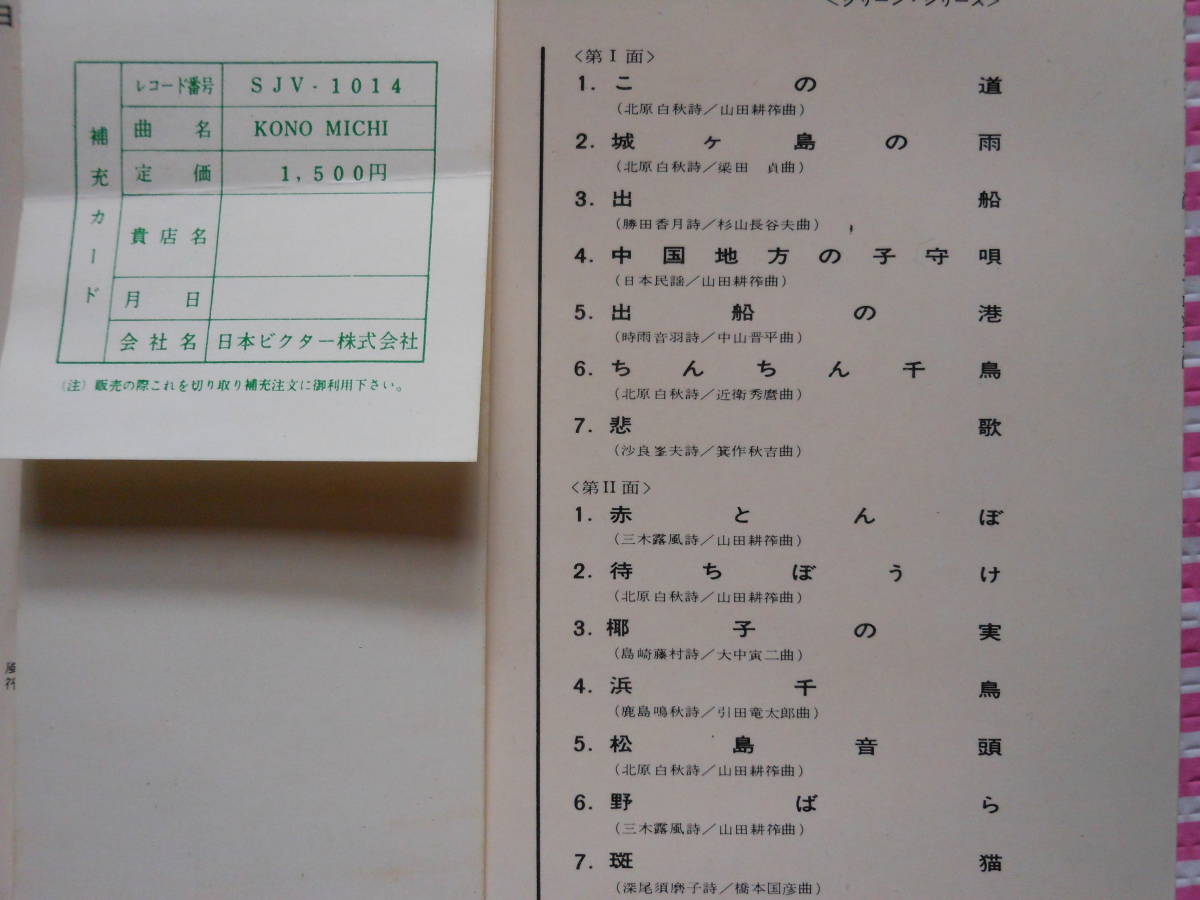 補充カード
レコード番号 SJV-1014
曲名 KONO MICHI
定価 1,500円
貴店名
月日
会社名 日本ビクター株式会社
(注) 販売の際これを切り取り補充注文に御利用下さい。
<グリーン・シリーズ>
<第I面>
1. この道
(北原白秋詩/山田耕筰曲)
2. 城ヶ島の雨
(北原白秋詩/梁田 貞曲)
3. 出船
(勝田香月詩/杉山長谷夫曲)
4. 中国地方の子守唄
(日本民謡/山田耕筰曲)
5. 出船の港
(時雨音羽詩/中山晋平曲)
6. ちんちん千鳥
(北原白秋詩/近衛秀麿曲)
7. 悲歌
(沙良峯夫詩/箕作秋吉曲)
<第II面>
1. 赤とんぼ
(三木露風詩/山田耕筰曲)
2. 待ちぼうけ
(北原白秋詩/山田耕筰曲)
3. 椰子の実
(島崎藤村詩/大中寅二曲)
4. 浜千鳥
(鹿島鳴秋詩/引田竜太郎曲)
5. 松島音頭
(北原白秋詩/山田耕筰曲)
6. 野ばら
(三木露風詩/山田耕筰曲)
7. 斑猫
(深尾須磨子詩/橋本国彦曲)